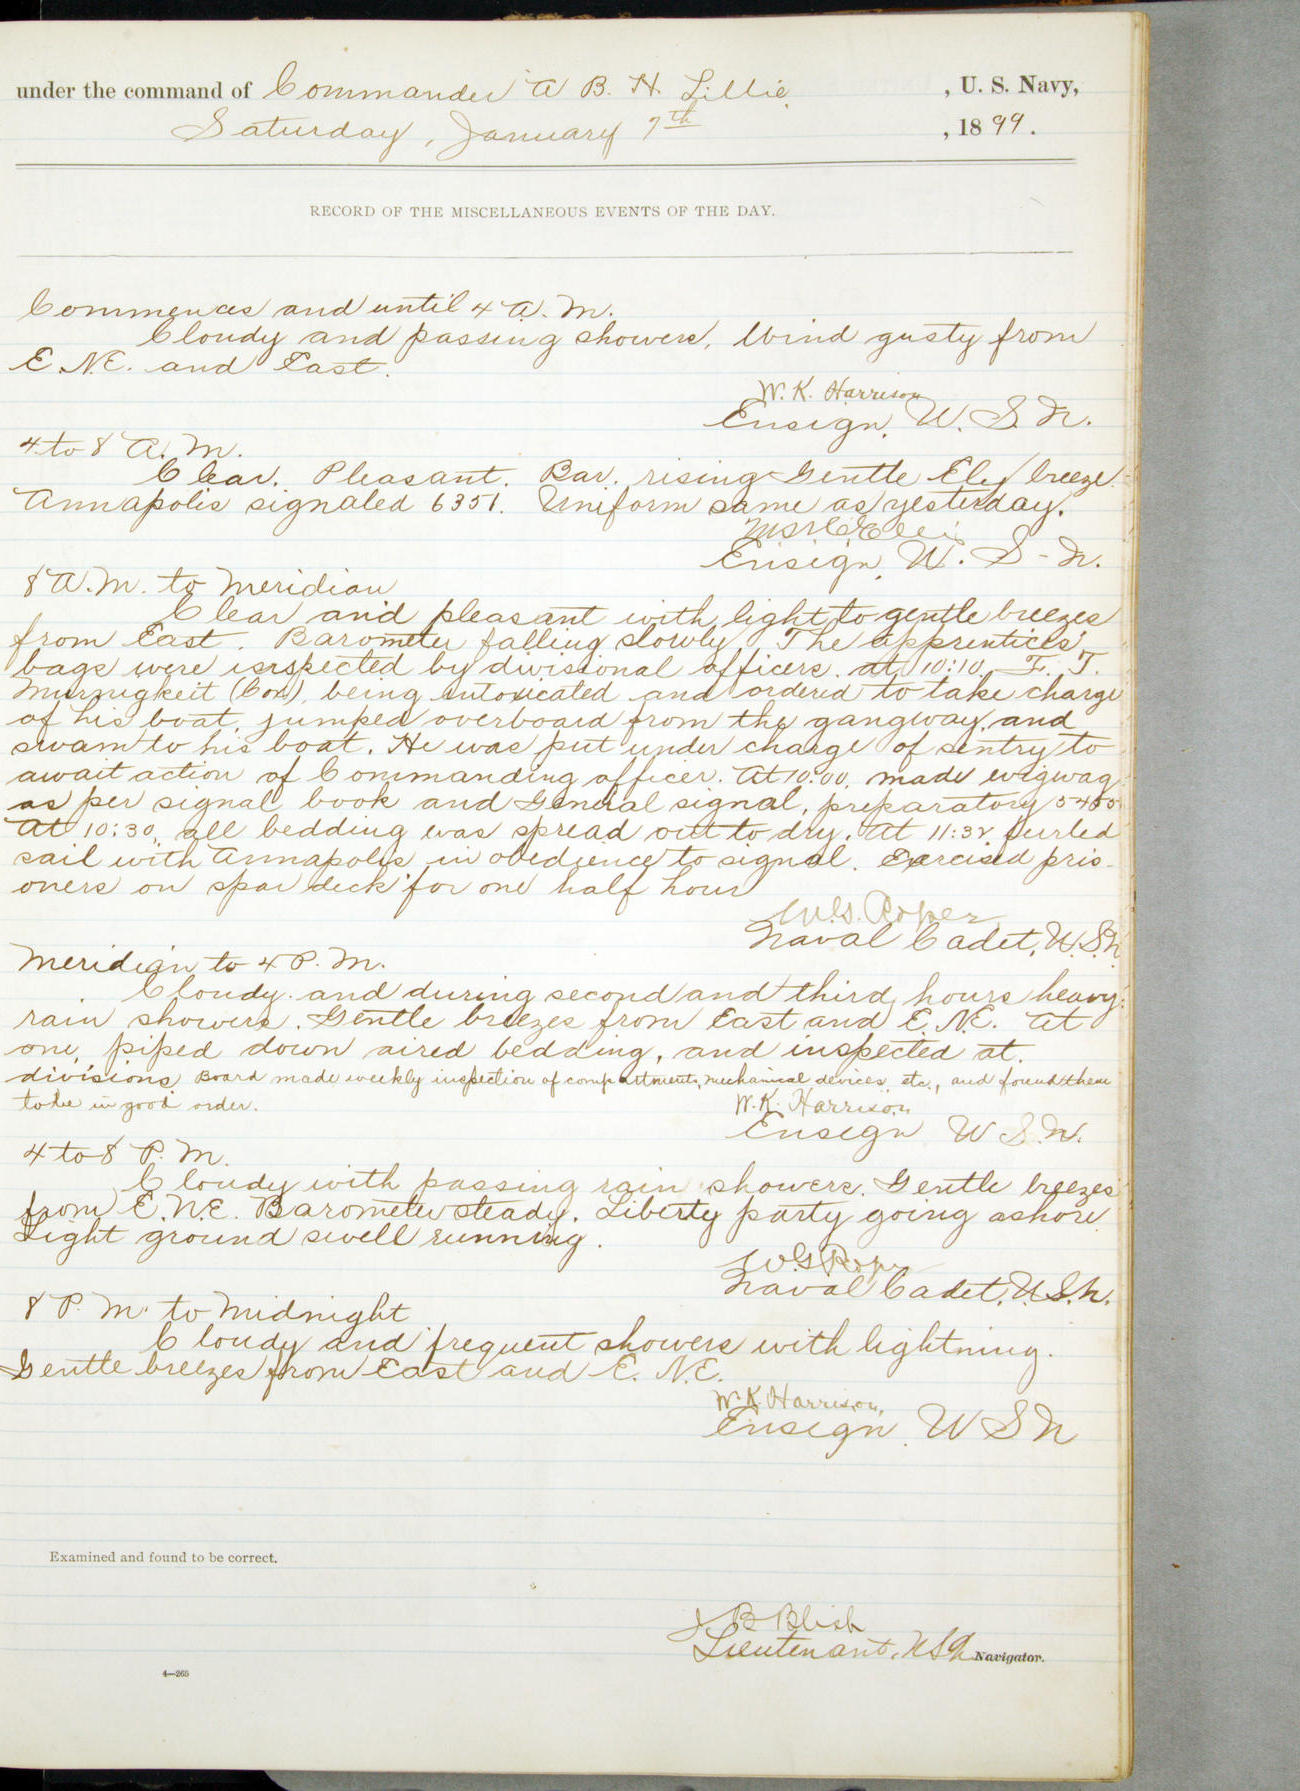 under the command of Commander A B. H. Lillie, U. S. Navy,
Saturday, January 7th, 1899.
RECORD OF THE MISCELLANEOUS EVENTS OF THE DAY.
Commences and until 4 A. M.
Cloudy and passing showers, Wind gusty from
E. N.E. and East.
W. K. Harrison
Ensign, U. S. N.
4 to 8 A. M.
Clear. Pleasant. Bar. rising Gentle Ely breeze.
Annapolis signaled 6351. Uniform same as yesterday.
Ensign, U. S - N.
8 A.M. to Meridian
Clear and pleasant with light to gentle breezes
from East. Barometer falling slowly The apprentices'
bags were inspected by divisional officers. at 10:10, F. T.
(Cox), being intoxicated and ordered to take charge
of his boat, jumped overboard from the gangway, and
swam to his boat. He was put under charge of sentry to
await action of Commanding officer. At 10:00, made wigwag
as per signal book and General signal, preparatory
At 10:30, all bedding was spread out to dry. At 11:32 furled
sail with Annapolis in obedience to signal. Exercised pris-
oners on spar deck for one half hour
W.G. Roper
Naval Cadet, U.S.N.
Meridian to 4 P. M.
Cloudy and during second and third hours heavy
rain showers. Gentle breezes from East and E. N.E. At
one, piped down aired bedding, and inspected at
divisions. Board made weekly inspection of compartments, mechanical devices, etc., and found them
to be in good order.
W. K. Harrison
Ensign U S. N.
4 to 8 P. M.
Cloudy with passing rain showers. Gentle breezes
from E. N.E. Barometer steady. Liberty party going ashore
Light ground swell running.
W G Roper
Naval Cadet, U.S.N.
8 P. M. to Midnight
Cloudy and frequent showers with lightning.
Gentle breezes from East and E. N.E.
W. K. Harrison,
Ensign, U S N
Examined and found to be correct.
J B Blish
Lieutenant, USN Navigator.
4—265